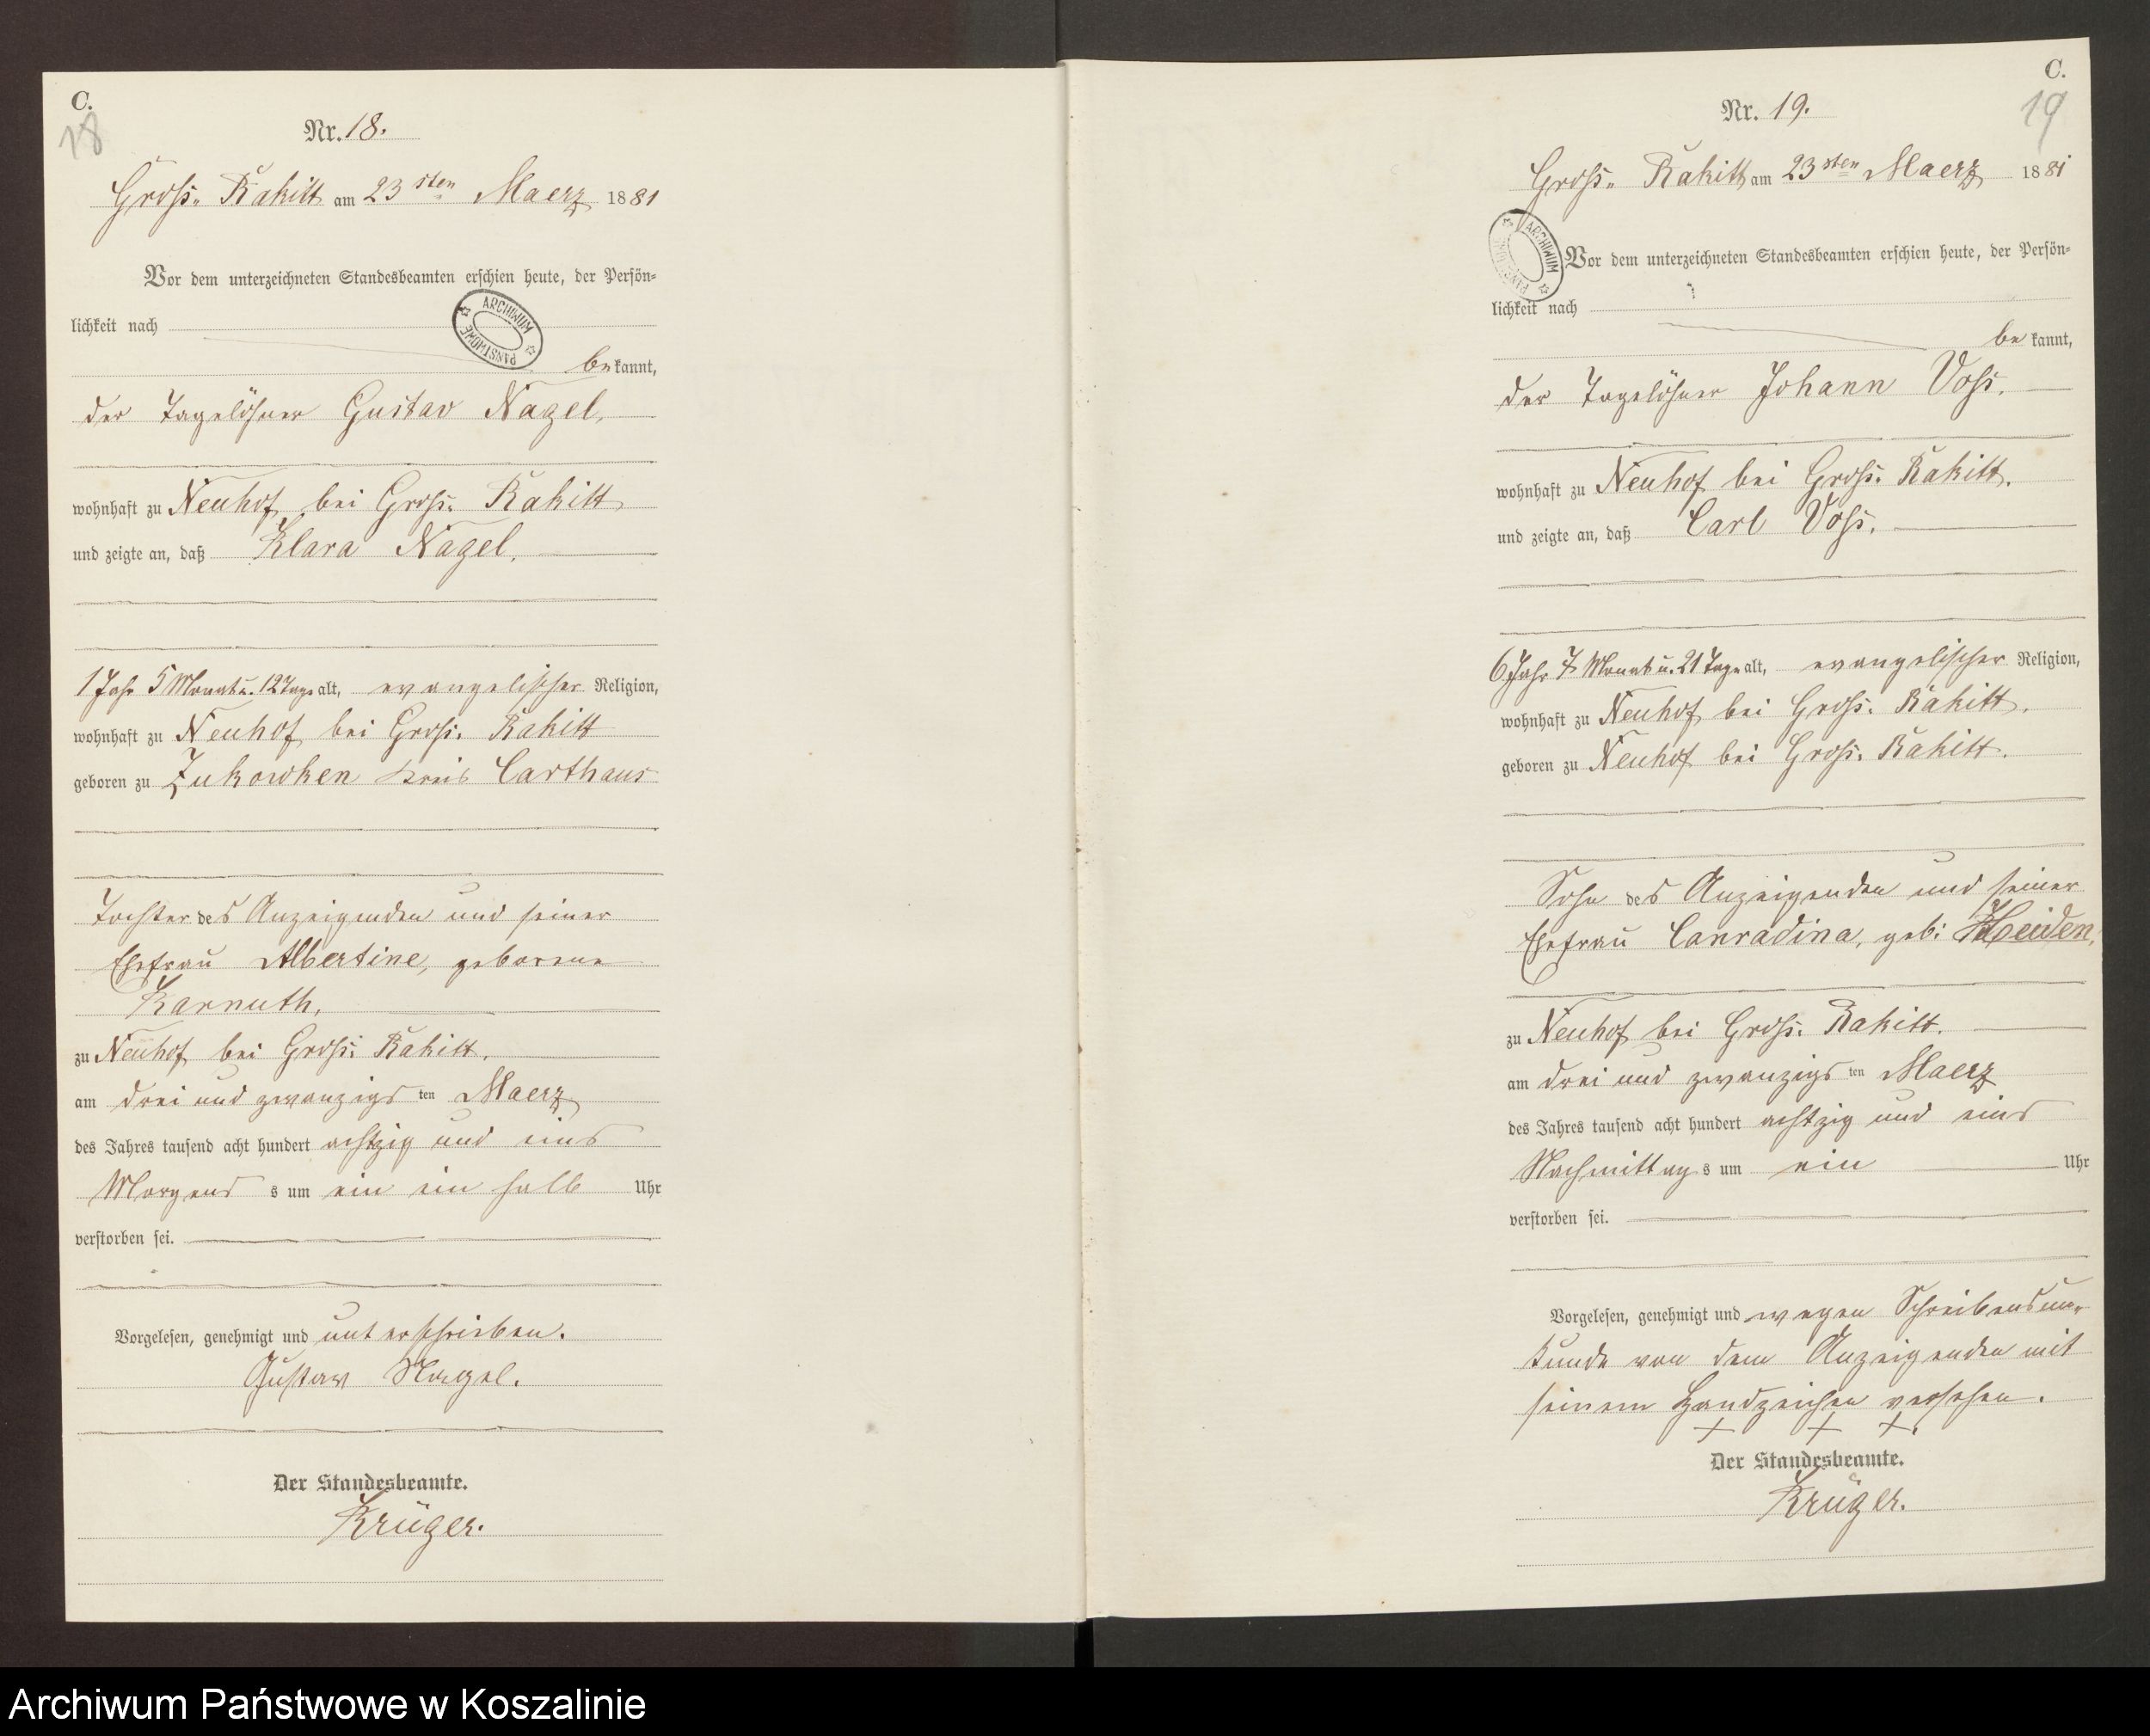 C.
18
Nr. 18.
Gross- Rakitt am 23sten Maerz 1881
Vor dem unterzeichneten Standesbeamten erschien heute, der Persön-
lichkeit nach
ARCHIWUM PAŃSTWOWE
bekannt,
der Tagelöhner Gustav Nagel,
wohnhaft zu Neuhof bei Gross: Rakitt
und zeigte an, daß Klara Nagel,
1 Jahr 5 Monat u. 12 Tage alt, evangelischer Religion,
wohnhaft zu Neuhof bei Gross: Rakitt
geboren zu Zukowken Kreis Carthaus
Tochter des Anzeigenden und seiner
Ehefrau Albertine, geborene
Karnuth,
zu Neuhof bei Gross: Rakitt,
am drei und zwanzigsten Maerz
des Jahres tausend acht hundert achtzig und eins
Morgends um ein ein halb Uhr
verstorben sei.
Vorgelesen, genehmigt und unterschrieben.
Gustaw Nagel.
Der Standesbeamte.
Krüger.
C.
19
Nr. 19.
Gross- Rakitt am 23sten Maerz 1881
ARCHIWUM PAŃSTWOWE
Vor dem unterzeichneten Standesbeamten erschien heute, der Persön-
lichkeit nach
bekannt,
der Tagelöhner Johann Voss.
wohnhaft zu Neuhof bei Gross: Rakitt.
und zeigte an, daß Carl Voss,
6 Jahr 7 Monat u. 21 Tage alt, evangelischer Religion,
wohnhaft zu Neuhof bei Gross: Rakitt.
geboren zu Neuhof bei Gross: Rakitt.
Sohn des Anzeigenden und seiner
Ehefrau Conradina, geb: Heiden,
zu Neuhof bei Gross: Rakitt.
am drei und zwanzigsten Maerz
des Jahres tausend acht hundert achtzig und eins
Nachmittags um ein Uhr
verstorben sei.
Vorgelesen, genehmigt und wegen Schreibensun-
kunde von dem Anzeigenden mit
seinem Handzeichen versehen.
+ + +.
Der Standesbeamte.
Krüger.
Archiwum Państwowe w Koszalinie